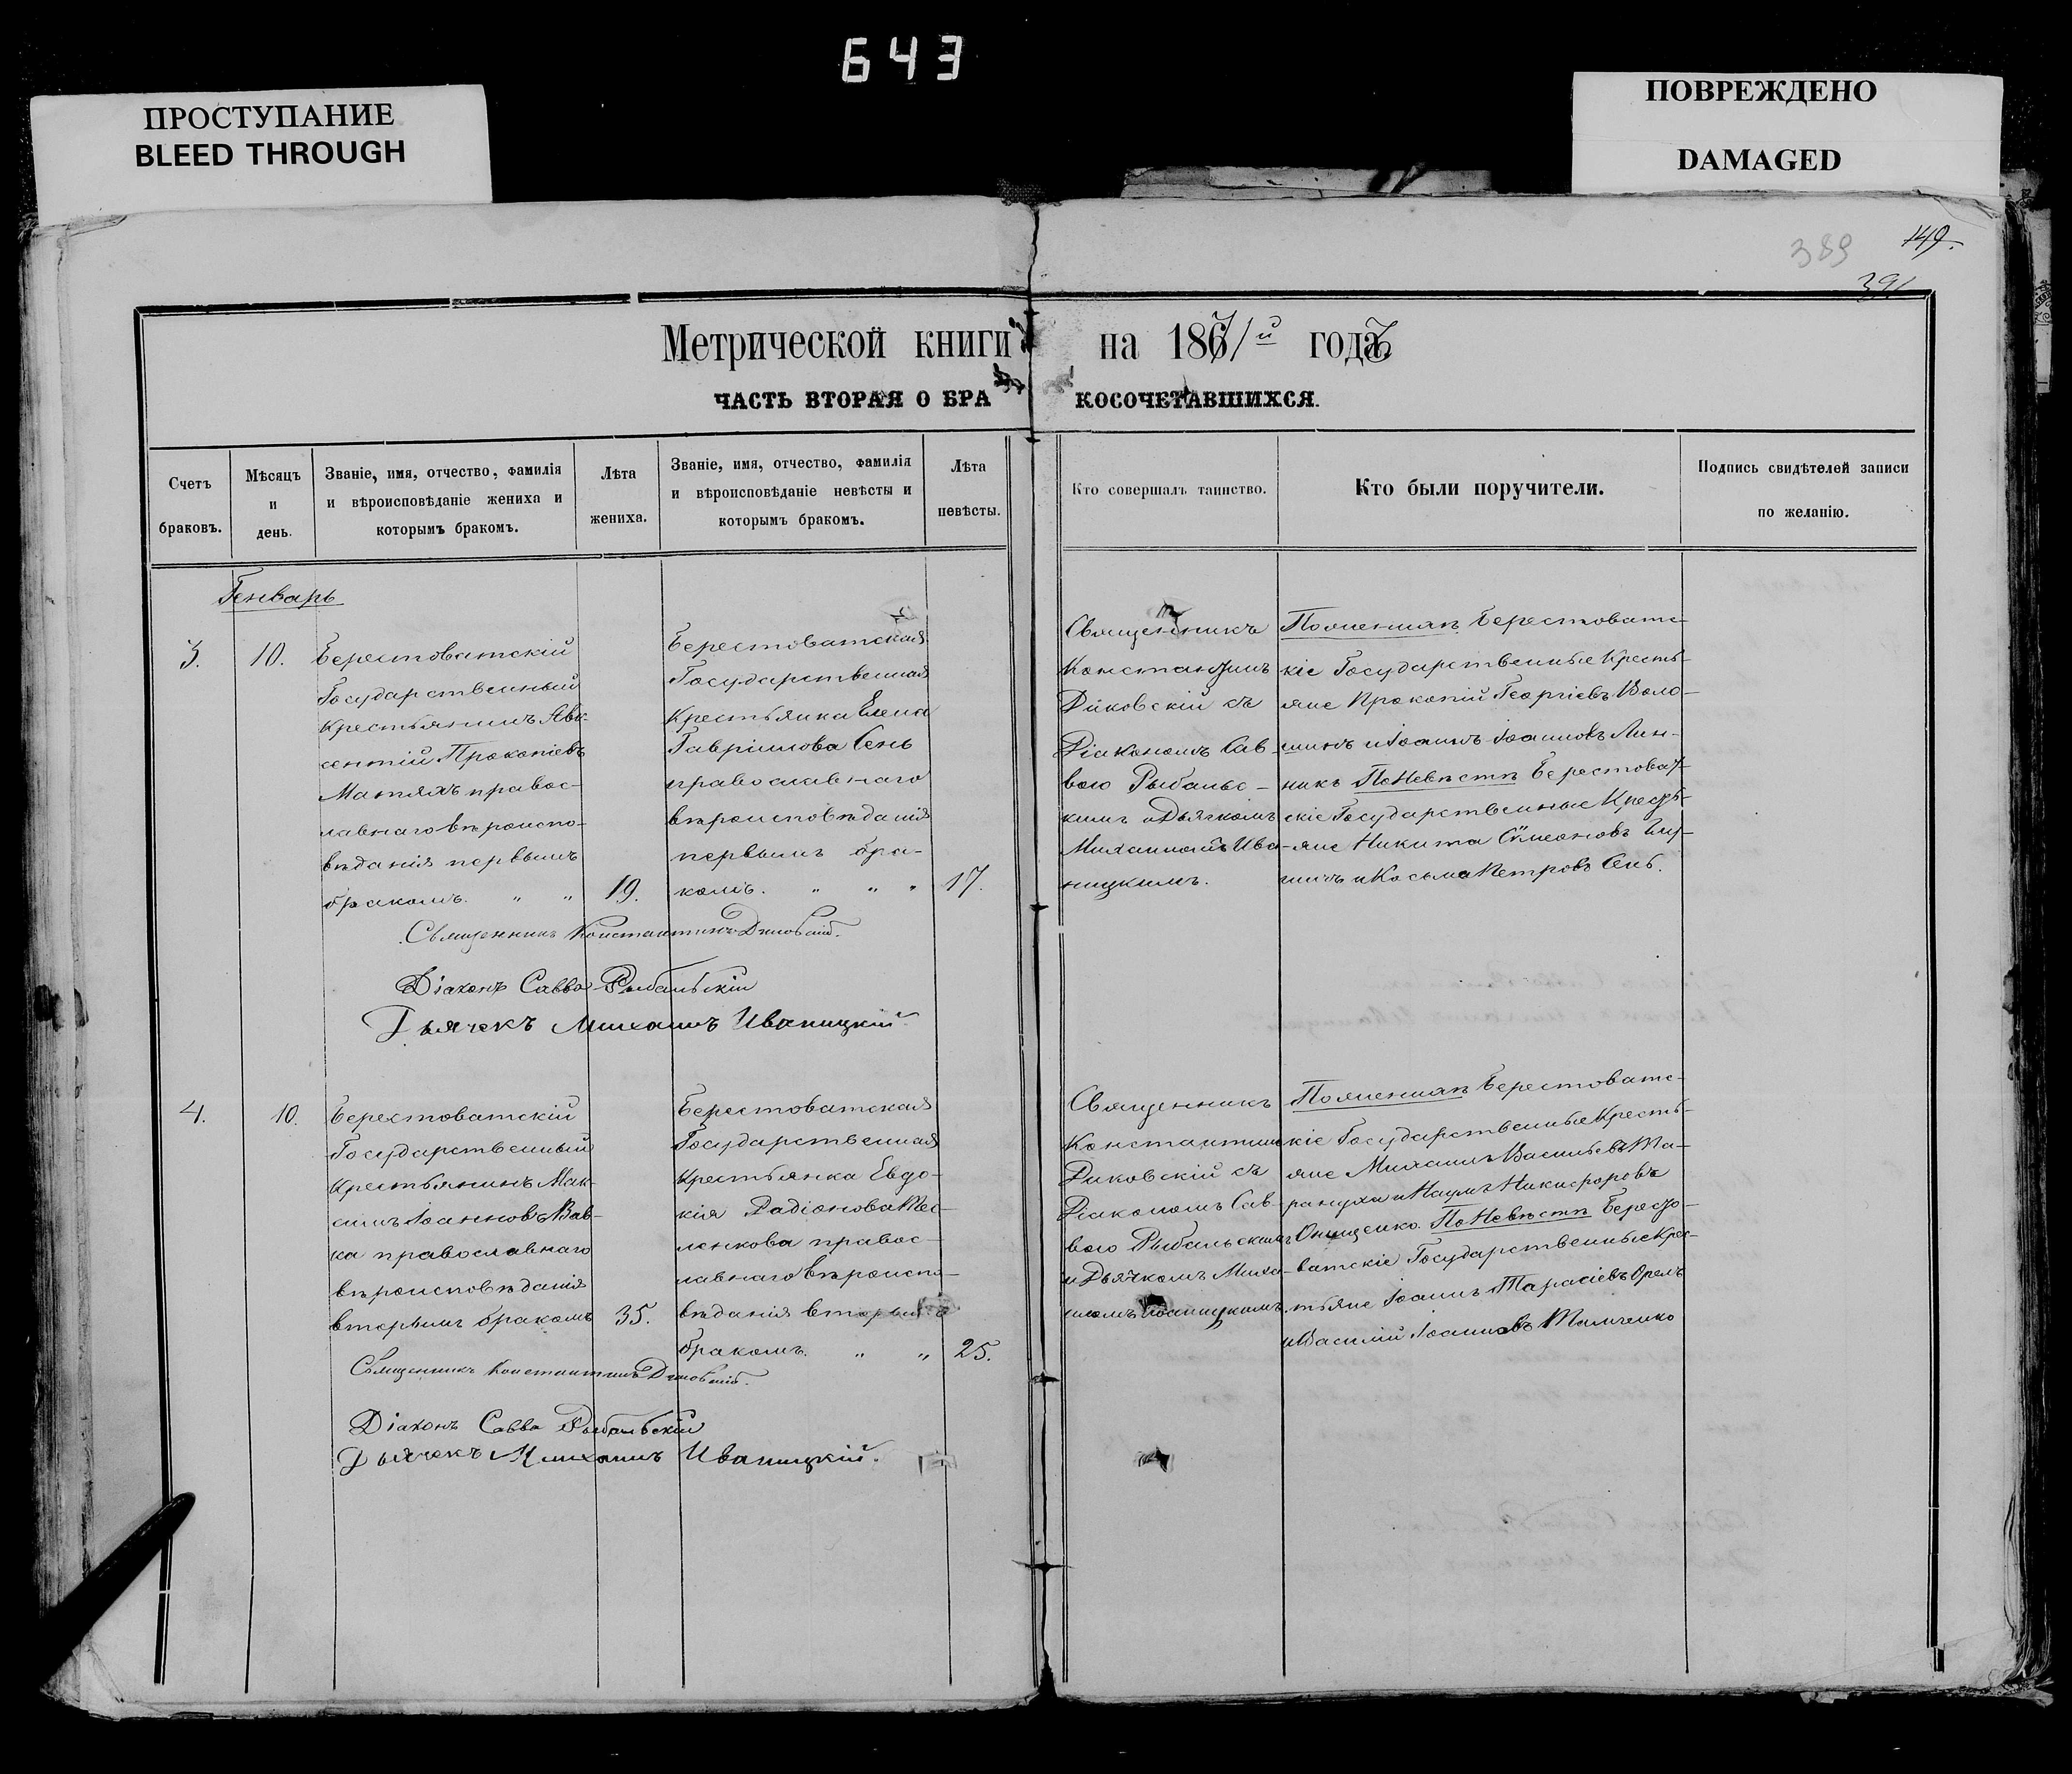 643
ПРОСТУПАНИЕ
BLEED THROUGH
ПОВРЕЖДЕНО
DAMAGED
389
149.
391
Метрической книги на 1871й годъ
ЧАСТЬ ВТОРАЯ О БРАКОСОЧЕТАВШИХСЯ.
Счетъ
браковъ.
Мѣсяцъ
и
день.
Званіе, имя, отчество, фамилія
и вѣроисповѣданіе жениха и
которымъ бракомъ.
Лѣта
жениха.
Званіе, имя, отчество, фамилія
и вѣроисповѣданіе невѣсты и
которымъ бракомъ.
Лѣта
невѣсты.
Кто совершалъ таинство.
Кто были поручители.
Подпись свидѣтелей записи
по желанію.
Генварь
3.
10.
Берестоватскій
Государственный
Крестьянинъ Авк-
сентій Прокопіевъ
православ-
лавнаго вѣроиспо-
вѣданія первымъ
бракомъ. " "
19.
Берестоватская
Государственная
Крестьянка Елена
Гавріилова Сень
православнаго
вѣроисповѣданія
первымъ бра-
комъ. " " "
17.
Священникъ
Константинъ
Диковскій съ
Діакономъ Сав-
вою Рыбальс-
кимъ и Дьячкомъ
Михаиломъ Ива-
ницкимъ.
По женихѣ Берестоватс-
кіе Государственные Кресть-
яне Прокопій Георгіевъ Воло-
шинъ и Іоаннъ Іоанновъ Лин-
никъ По Невѣстѣ Берестоват-
скіе Государственные Кресть-
яне Никита Сѵмеоновъ
и Косьма Петровъ Сень.
Священникъ Константинъ Диковскій.
Діаконъ Савва Рыбальскій
Дьячекъ Михаилъ Иваницкій.
4.
10.
Берестоватскій
Государственный
Крестьянинъ Мак-
симъ Іоанновъ Вав-
ка православнаго
вѣроисповѣданія
вторымъ бракомъ
35.
Берестоватская
Государственная
Крестьянка Евдо-
кія Радіонова Тес-
ленкова правос-
лавнаго вѣроиспо-
вѣданія вторымъ
бракомъ. " "
25.
Священникъ
Константинъ
Диковскій съ
Діакономъ Сав-
вою Рыбальскимъ
и Дьячкомъ Миха-
иломъ Иваницкимъ.
По женихѣ Берестоватс-
кіе Государственные Кресть-
яне Михаилъ Васильевъ Та-
рануха и Наумъ Никифоровъ
Онищенко. По Невѣстѣ Бересто-
ватскіе Государственные Крес-
тьяне Іоаннъ Тарасіевъ Орелъ
и Василій Іоанновъ Тимченко
Священникъ Константинъ Диковскій.
Діаконъ Савва Рыбальскій
Дьячекъ Михаилъ Иваницкій.